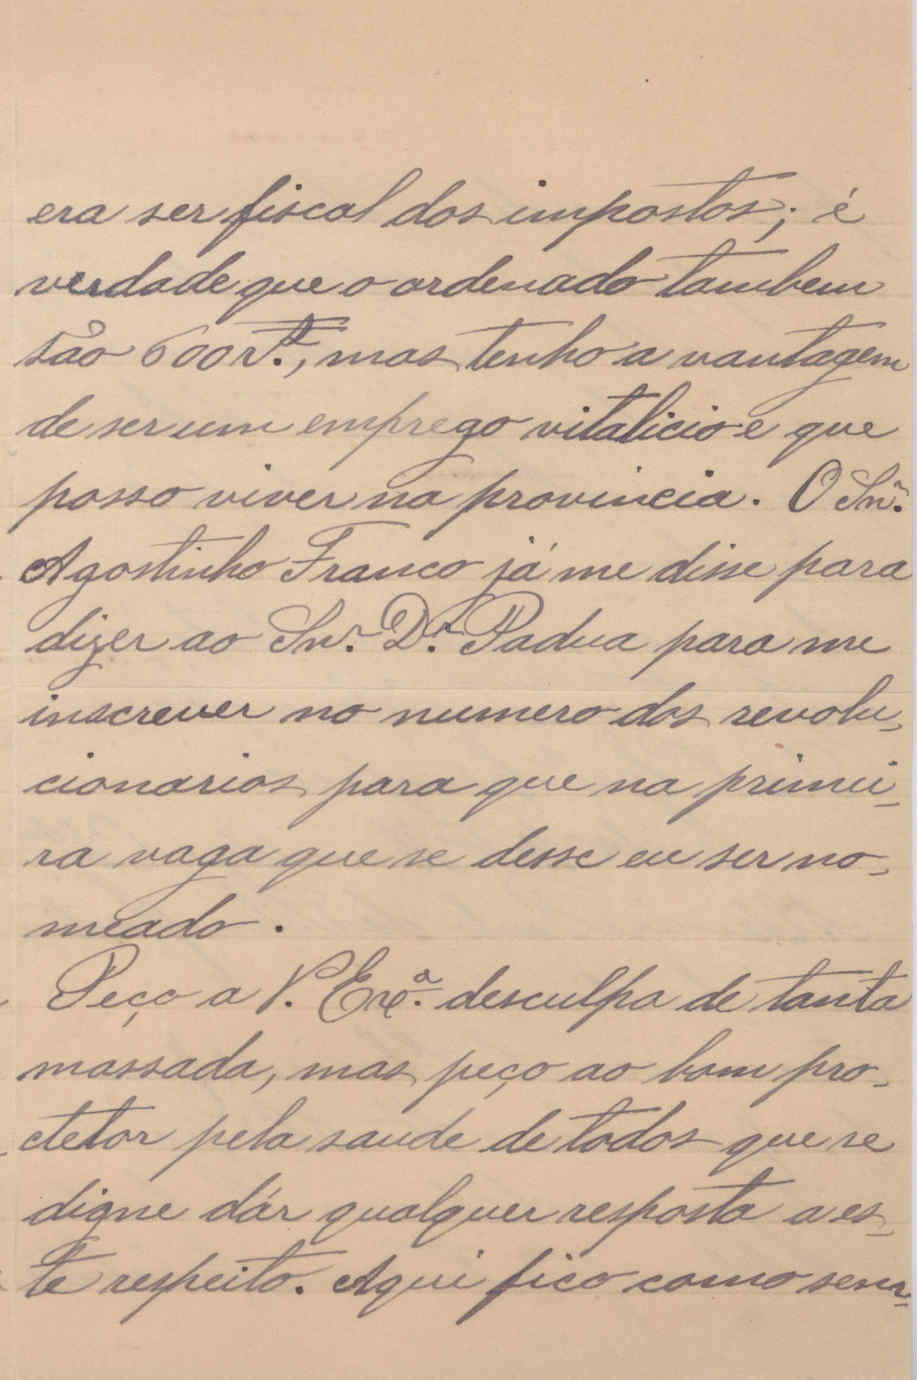 era ser fiscal dos impostos; é
verdade que o ordenado tambem
são 600 r.s, mas tenho a vantagem
de ser um emprego vitalicio e que
posso viver na provincia. O Snr.
Agostinho Franco já me disse para
dizer ao Snr. Dr. Padua para me
inscrever no numero dos revolu-
cionarios para que na primei-
ra vaga que se desse eu ser no-
meado.
Peço a V. Exª. desculpa de tanta
massada, mas peço ao bom pro-
ctetor pela saude de todos que se
digne dár qualquer resposta a es-
te respeito. Aqui fico como sem-